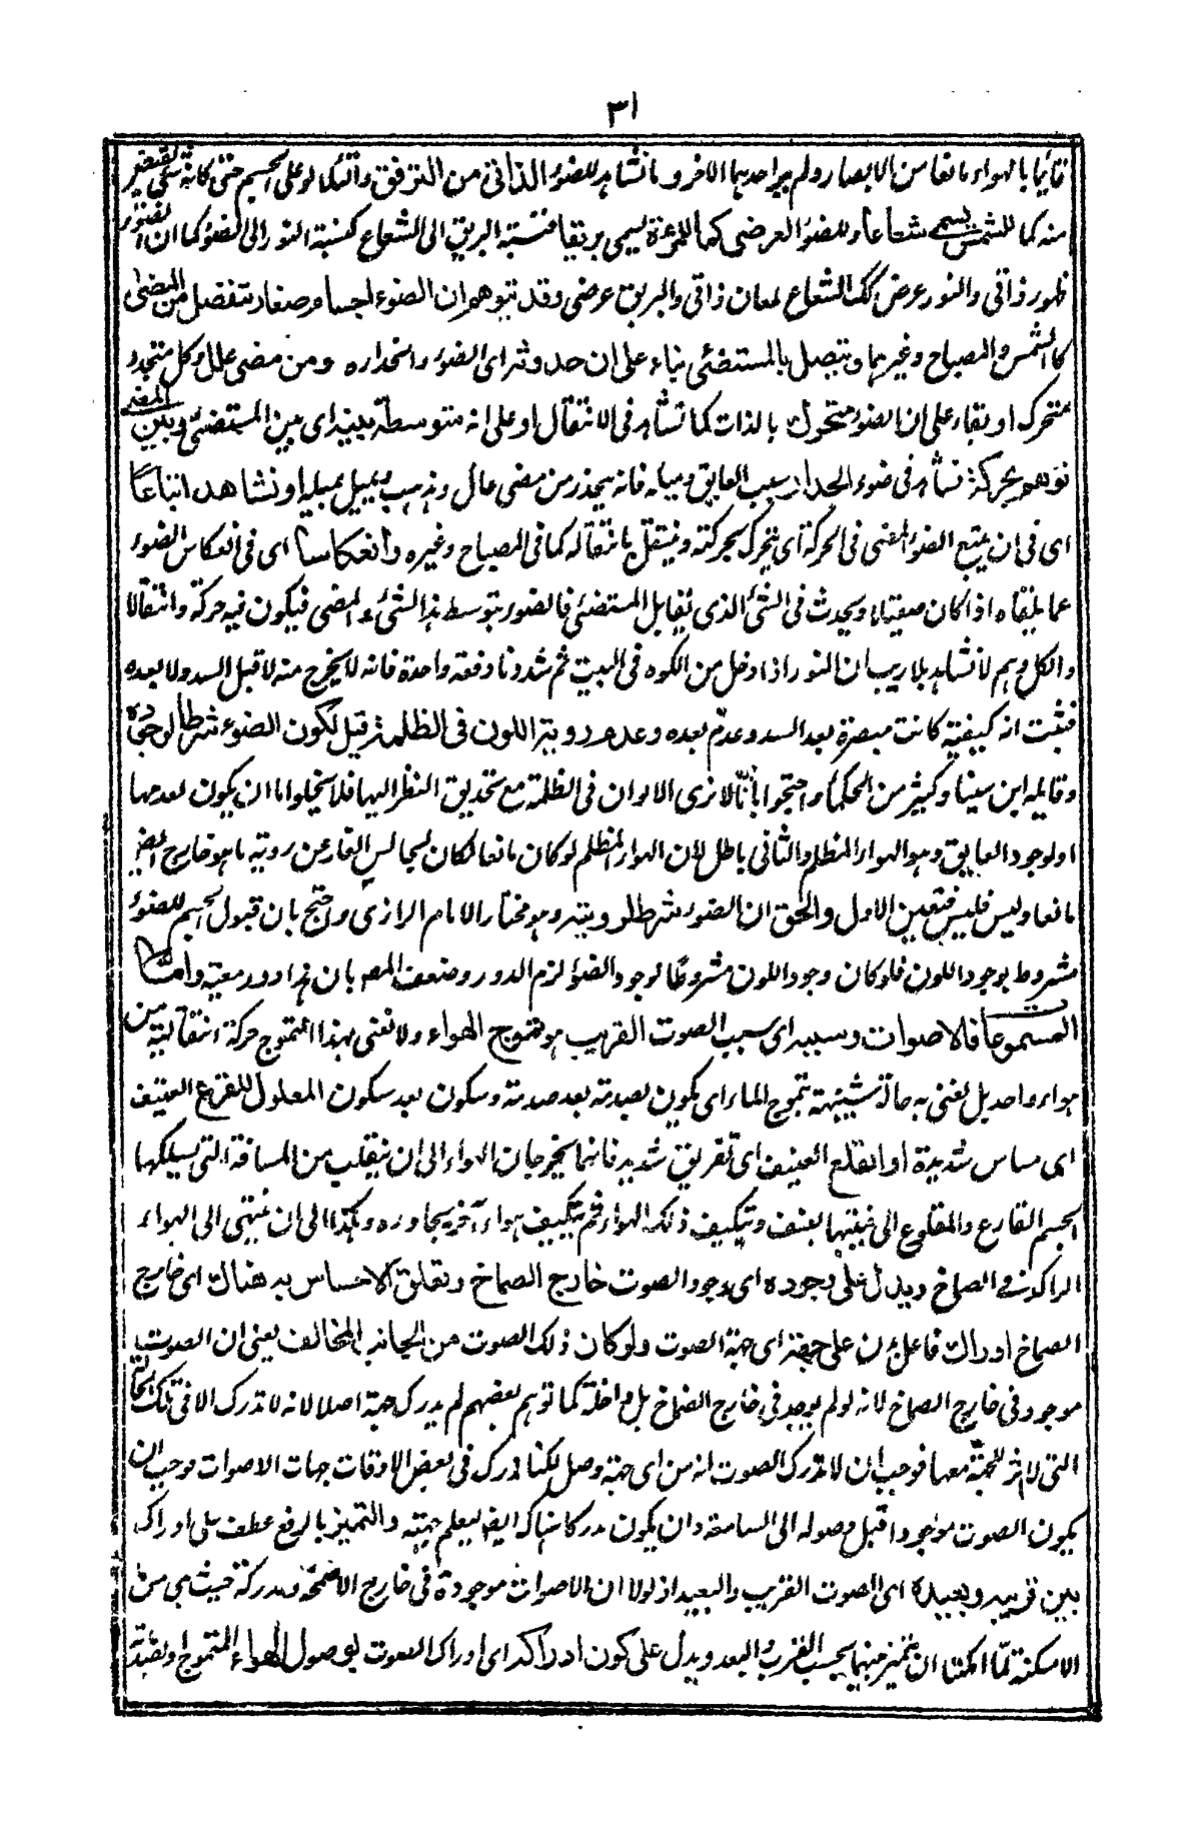 ٣١
قائما بالهواء مانعا من الابصار ولم ير احدهما الاخر وما نشاهد للضوء الذاتى من الترقرق والتلألؤ على الجسم حتى كانه شئ يفيض
منه كما للشمس يسمى شعاعا وللضوء العرضى كما للمرءاة يسمى بريقا فنسبة البريق الى الشعاع كنسبة النور الى الضوء كما ان الضوء
ظهور ذاتى والنور عرضى كك الشعاع لمعان ذاتى والبريق عرضى وقد يتوهم ان الضوء اجسام صغار تنفصل من المضئ
كالشمس والمصباح وغيرهما ويتصل بالمستضئى بناء على ان حدوثه اى الضوء وانحداره ومن مضى عال وكل منحدر
متحرك او بقاء على ان الضوء متحرك بالذات كما نشاهد فى الانتقال او على انه متوسط بينه اى بين المستضئى وبين المضى
توهم بحركة نشاهد فى ضوء الجدار بسبب العايق وميله فانه ينحدر من مضى عال ويذهب ويميل بميله او نشاهد اتباعا
اى فى ان يتبع الضوء المضى فى الحركة اى يتحرك بحركته وينتقل بانتقاله كما فى المصباح وغيره وانعكاسا اى فى انعكاس الضوء
عما يلقاه اذا كان صقيلا ويحدث فى الشئ الذى يقابل المستضئى فالضوء بتوسط هذا الشئ والمضى فيكون فيه حركة وانتقالا
والكل وهم لانشاهد بلا ريب ان النور اذا دخل من الكوه فى البيت ثم شددنا دفعة واحدة فانه لا يخرج منه لا قبل السد ولا بعده
فثبت انه كيفية كانت مبصرة بعد السد وعدم بعده وعدم رويته اللون فى الظلمة قيل لكون الضوء شرطا لوجوده
وقايله ابن سينا وكثير من الحكماء واحتجوا بأنّا لا نرى الالوان فى الظلمة مع تحديق النظر اليها فلا يخلو اما ان يكون لعدمها
او لوجود العايق وهو الهواء المظلم والثانى باطل لان الهواء المظلم لو كان مانعا لكان لجالس الغار عن روية ما هو خارج الغار
مانعا وليس فليس فتعين الاول والحق ان الضوء شرط لرويته وهو مختار الامام الرازى واحتج بان قبول الجسم للضوء
مشروط بوجود اللون فلو كان وجود اللون مشروطا لوجود الضوء لزم الدور وضعف المصـ بان هذا دور معية وامّا
المسموعات فالاصوات وسببه اى سبب الصوت القريب هو تموج الهواء ولا نعنى بهذا التموج حركة انتقالية من
هواء واحد بل نعنى به حالة شبيهة بتموج الماء اى يكون بصدمة بعد صدمة وسكون بعد سكون المعلول للقرع العنيف
اى مساس شديدة او القلع العنيف اى تفريق شديد فانهما يخرجان الهواء الى ان ينقلب من المسافة التى يسلكها
الجسم القارع والمقلوع الى جنبتيها بعنف ويتكيف ذلك الهواء ثم يتكيف هواء آخر يجاوره وهكذا الى ان ينتهى الى الهواء
الراكد فى الصماخ ويدل على وجوده اى وجود الصوت خارج الصماخ وتعلق الاحساس به هناك اى خارج
الصماخ ادراك فاعل يدل على جهته اى جهة الصوت ولو كان ذلك الصوت من الجانب المخالف يعنى ان الصوت
موجود فى خارج الصماخ لانه لو لم يوجد فى خارج الصماخ بل داخله كما توهم بعضهم لم يدرك جهته اصلا لانه لا تدرك الا فى تلك الحالة
التى لا اثر للجهة معها فوجب ان لا تدرك الصوت انه من اى جهة وصل لكنا ندرك فى بعض الاوقات جهات الاصوات فوجب ان
يكون الصوت موجودا قبل وصوله الى السامعة وان يكون مدركا هناك ايضا ليعلم جهته والتميز بالرفع عطف على ادراك
بين قريبه وبعيده اى الصوت القريب والبعيد اذ لولا ان الاصوات موجودة فى خارج الاصمخة ومدركة حيث هى من
الامكنة لمّا امكننا ان نتميز بينهما بحسب القرب والبعد ويدل على كون ادراكه اى ادراك الصوت بوصول الهواء المتموج